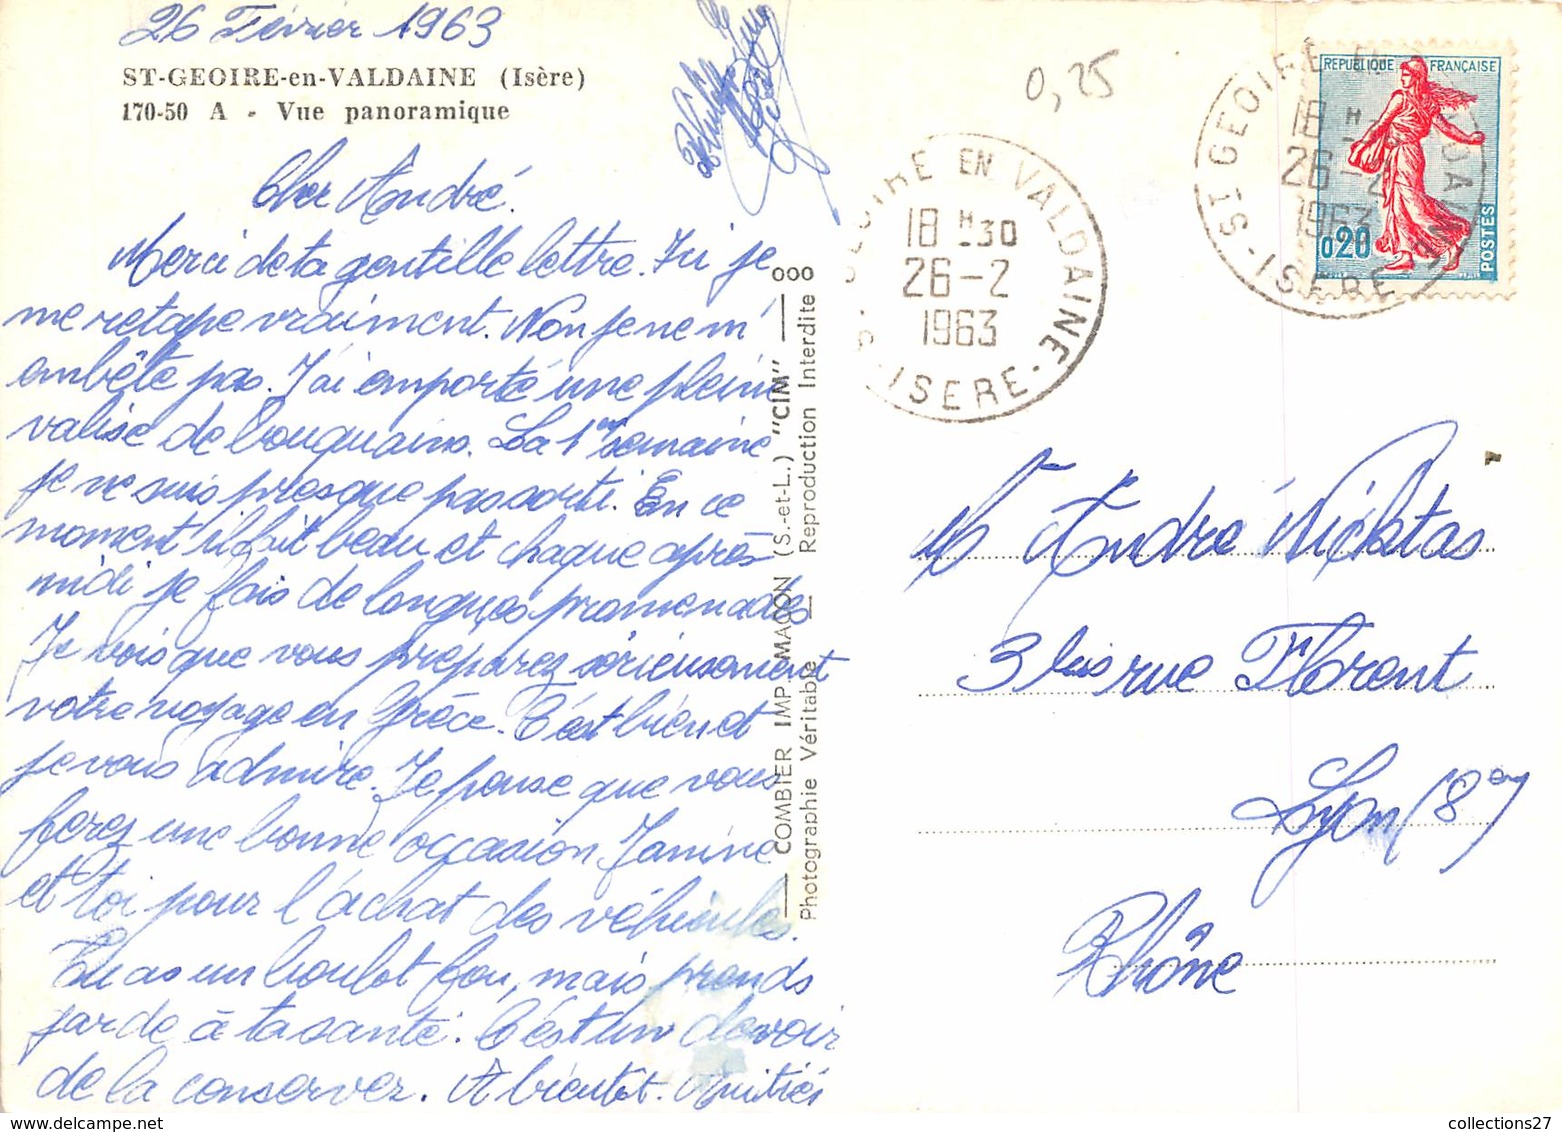 26 Février 1963
ST-GEOIRE-en-VALDAINE (Isère)
170-50 A - Vue panoramique
Cher André.
Merci de ta gentille lettre. Ici je
me retape vraiment. Non je ne m'
embête pas. J'ai emporté une pleine
valise de bouquins. La 1ère semaine
je ne suis presque pas sorti. En ce
moment il fait beau et chaque après-
midi je fais de longues promenades
Je vois que vous préparez sérieusement
votre voyage en Grèce. C'est bien et
je vous admire. Je pense que vous
ferez une bonne occasion Janine
et toi pour l'achat des véhicules.
Tu as un boulot fou, mais prends
garde à ta santé. C'est un devoir
de la conserver. A bientôt. Amitiés
COMBIER IMP. MACON (S.-et-L.) "CIM"
Photographie Véritable - Reproduction Interdite
0,25
GEOIRE EN VALDAINE
18 H 30
26-2
1963
ISERE
ST GEOIRE EN VALDAINE
18 H
26-2
1963
ISERE
REPUBLIQUE FRANÇAISE
0,20
POSTES
M André
3 bis rue Florent
Lyon (8e)
Rhône
collections27